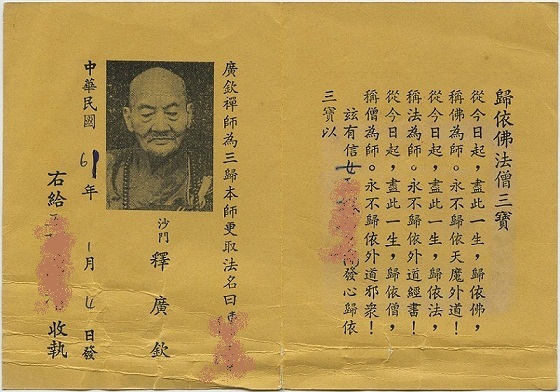 歸依佛法僧三寶
從今日起，盡此一生，歸依佛，
稱佛為師。永不歸依天魔外道！
從今日起，盡此一生，歸依法，
稱法為師。永不歸依外道經書！
從今日起，盡此一生，歸依僧，
稱僧為師。永不歸依外道邪眾！
茲有信女發心歸依
三寶以
廣欽禪師為三歸本師更取法名曰
沙門 釋廣欽
中華民國61年1月4日發
右給收執